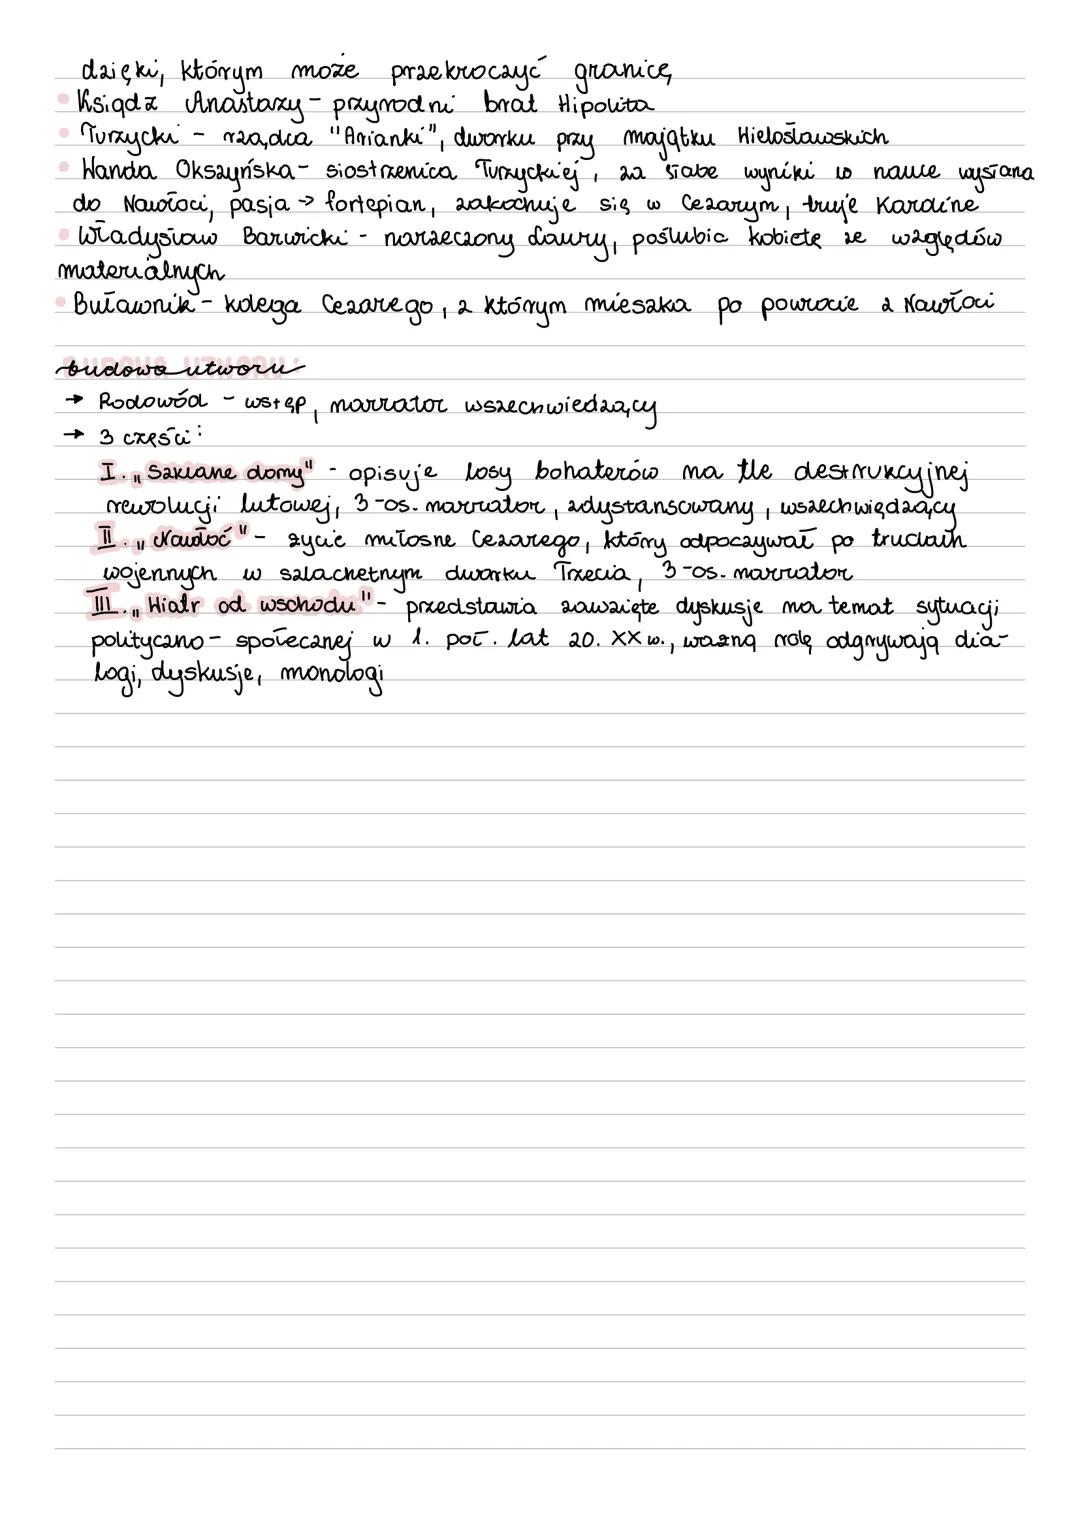 dzięki, którym może przekroczyć granicę
• Ksiądz Anastazy - przyrodni brat Hipolita
• Turzycki - rządca "Arianki", dworku przy majątku Wielosławskich
• Wanda Okszyńska - siostrzenica Turzyckiej, za słabe wyniki w nauce wysłana
do Nawłoci, pasja → fortepian, zakochuje się w Cezarym, truje Karoline
• Władysław Barwicki - narzeczony Laury, poślubia kobietę ze względów
materialnych
• Buławnik - kolega Cezarego, z którym mieszka po powrocie z Nawłoci
budowa utworu:
→ Rodowód - wstęp, narrator wszechwiedzący
→ 3 części:
I. „Szklane domy" - opisuje losy bohaterów na tle destrukcyjnej
rewolucji lutowej, 3-os. narrator, zdystansowany, wszechwiędzący
II. „Nawłoć" - życie miłosne Cezarego, który odpoczywał po trudach
wojennych w szlachetnym dworku Trzecia, 3-os. narrator
III. „Wiatr od wschodu" - przedstawia zawzięte dyskusje na temat sytuacji
polityczno - społecznej w 1. poł. lat 20. XX w., ważną rolę odgrywają dia-
logi, dyskusje, monologi